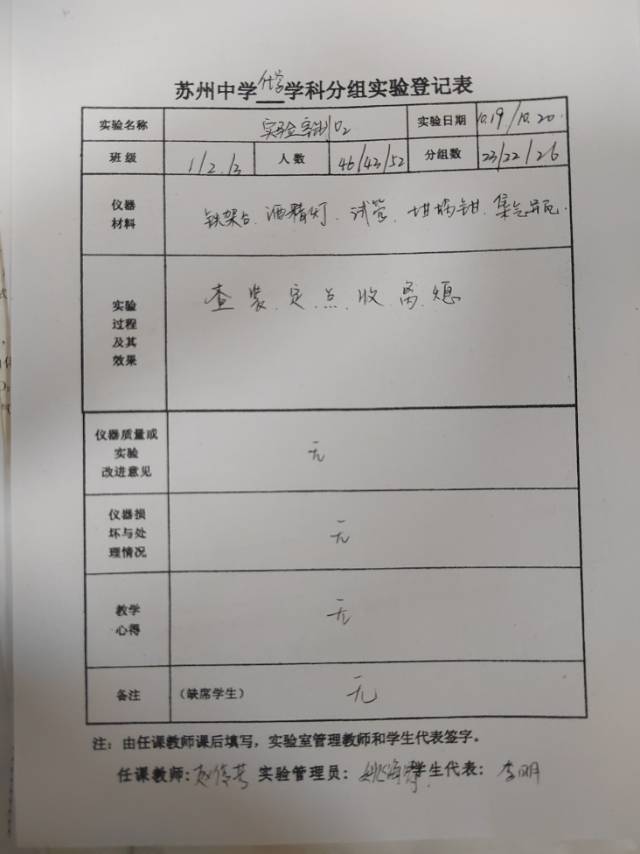 苏州中学化学学科分组实验登记表
实验名称 实验室制O2 实验日期 10.19/10.20.
班级 1/2/3 人数 46/43/52 分组数 23/22/26
仪器
材料
铁架台、酒精灯、试管、坩埚钳、集气瓶.
实验
过程
及其
效果
查、装、定、点、收、离、熄
仪器质量或
实验
改进意见
无
仪器损
坏与处
理情况
无
教学
心得
无
备注 (缺席学生) 无
注：由任课教师课后填写，实验室管理教师和学生代表签字。
任课教师: 赵 实验管理员: 姚海 学生代表: 李明